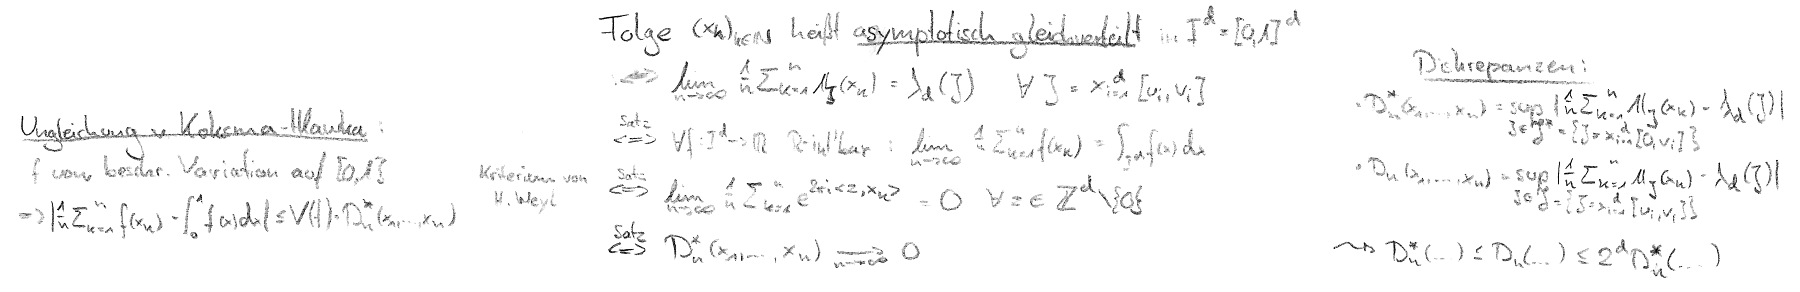 Ungleichung v. Koksma-Hlawka :
f von beschr. Variation auf [0,1]
=> |1/n Σ_{k=1}^n f(x_k) - ∫_0^1 f(x)dx| ≤ V(f) · D_n^*(x_1,...,x_n)
Folge (x_k)_{k∈ℕ} heißt asymptotisch gleichverteilt in I^d = [0,1]^d
:<=> lim_{n→∞} 1/n Σ_{k=1}^n 𝟙_J(x_k) = λ_d(J) ∀ J = ×_{i=1}^d [u_i, v_i]
Satz <=> ∀ f: I^d → ℝ R-int'bar : lim_{n→∞} 1/n Σ_{k=1}^n f(x_k) = ∫_{I^d} f(x)dx
Kriterium von H. Weyl
Satz <=> lim_{n→∞} 1/n Σ_{k=1}^n e^{2πi<z,x_k>} = 0 ∀ z ∈ ℤ^d \ {0}
Satz <=> D_n^*(x_1,...,x_n) →_{n→∞} 0
Diskrepanzen :
· D_n^*(x_1,...,x_n) = sup |1/n Σ_{k=1}^n 𝟙_J(x_k) - λ_d(J)|
J∈𝒥^* = {J = ×_{i=1}^d [0, v_i]}
· D_n(x_1,...,x_n) = sup |1/n Σ_{k=1}^n 𝟙_J(x_k) - λ_d(J)|
J∈𝒥 = {J = ×_{i=1}^d [u_i, v_i]}
⇝ D_n^*(...) ≤ D_n(...) ≤ 2^d D_n^*(...)